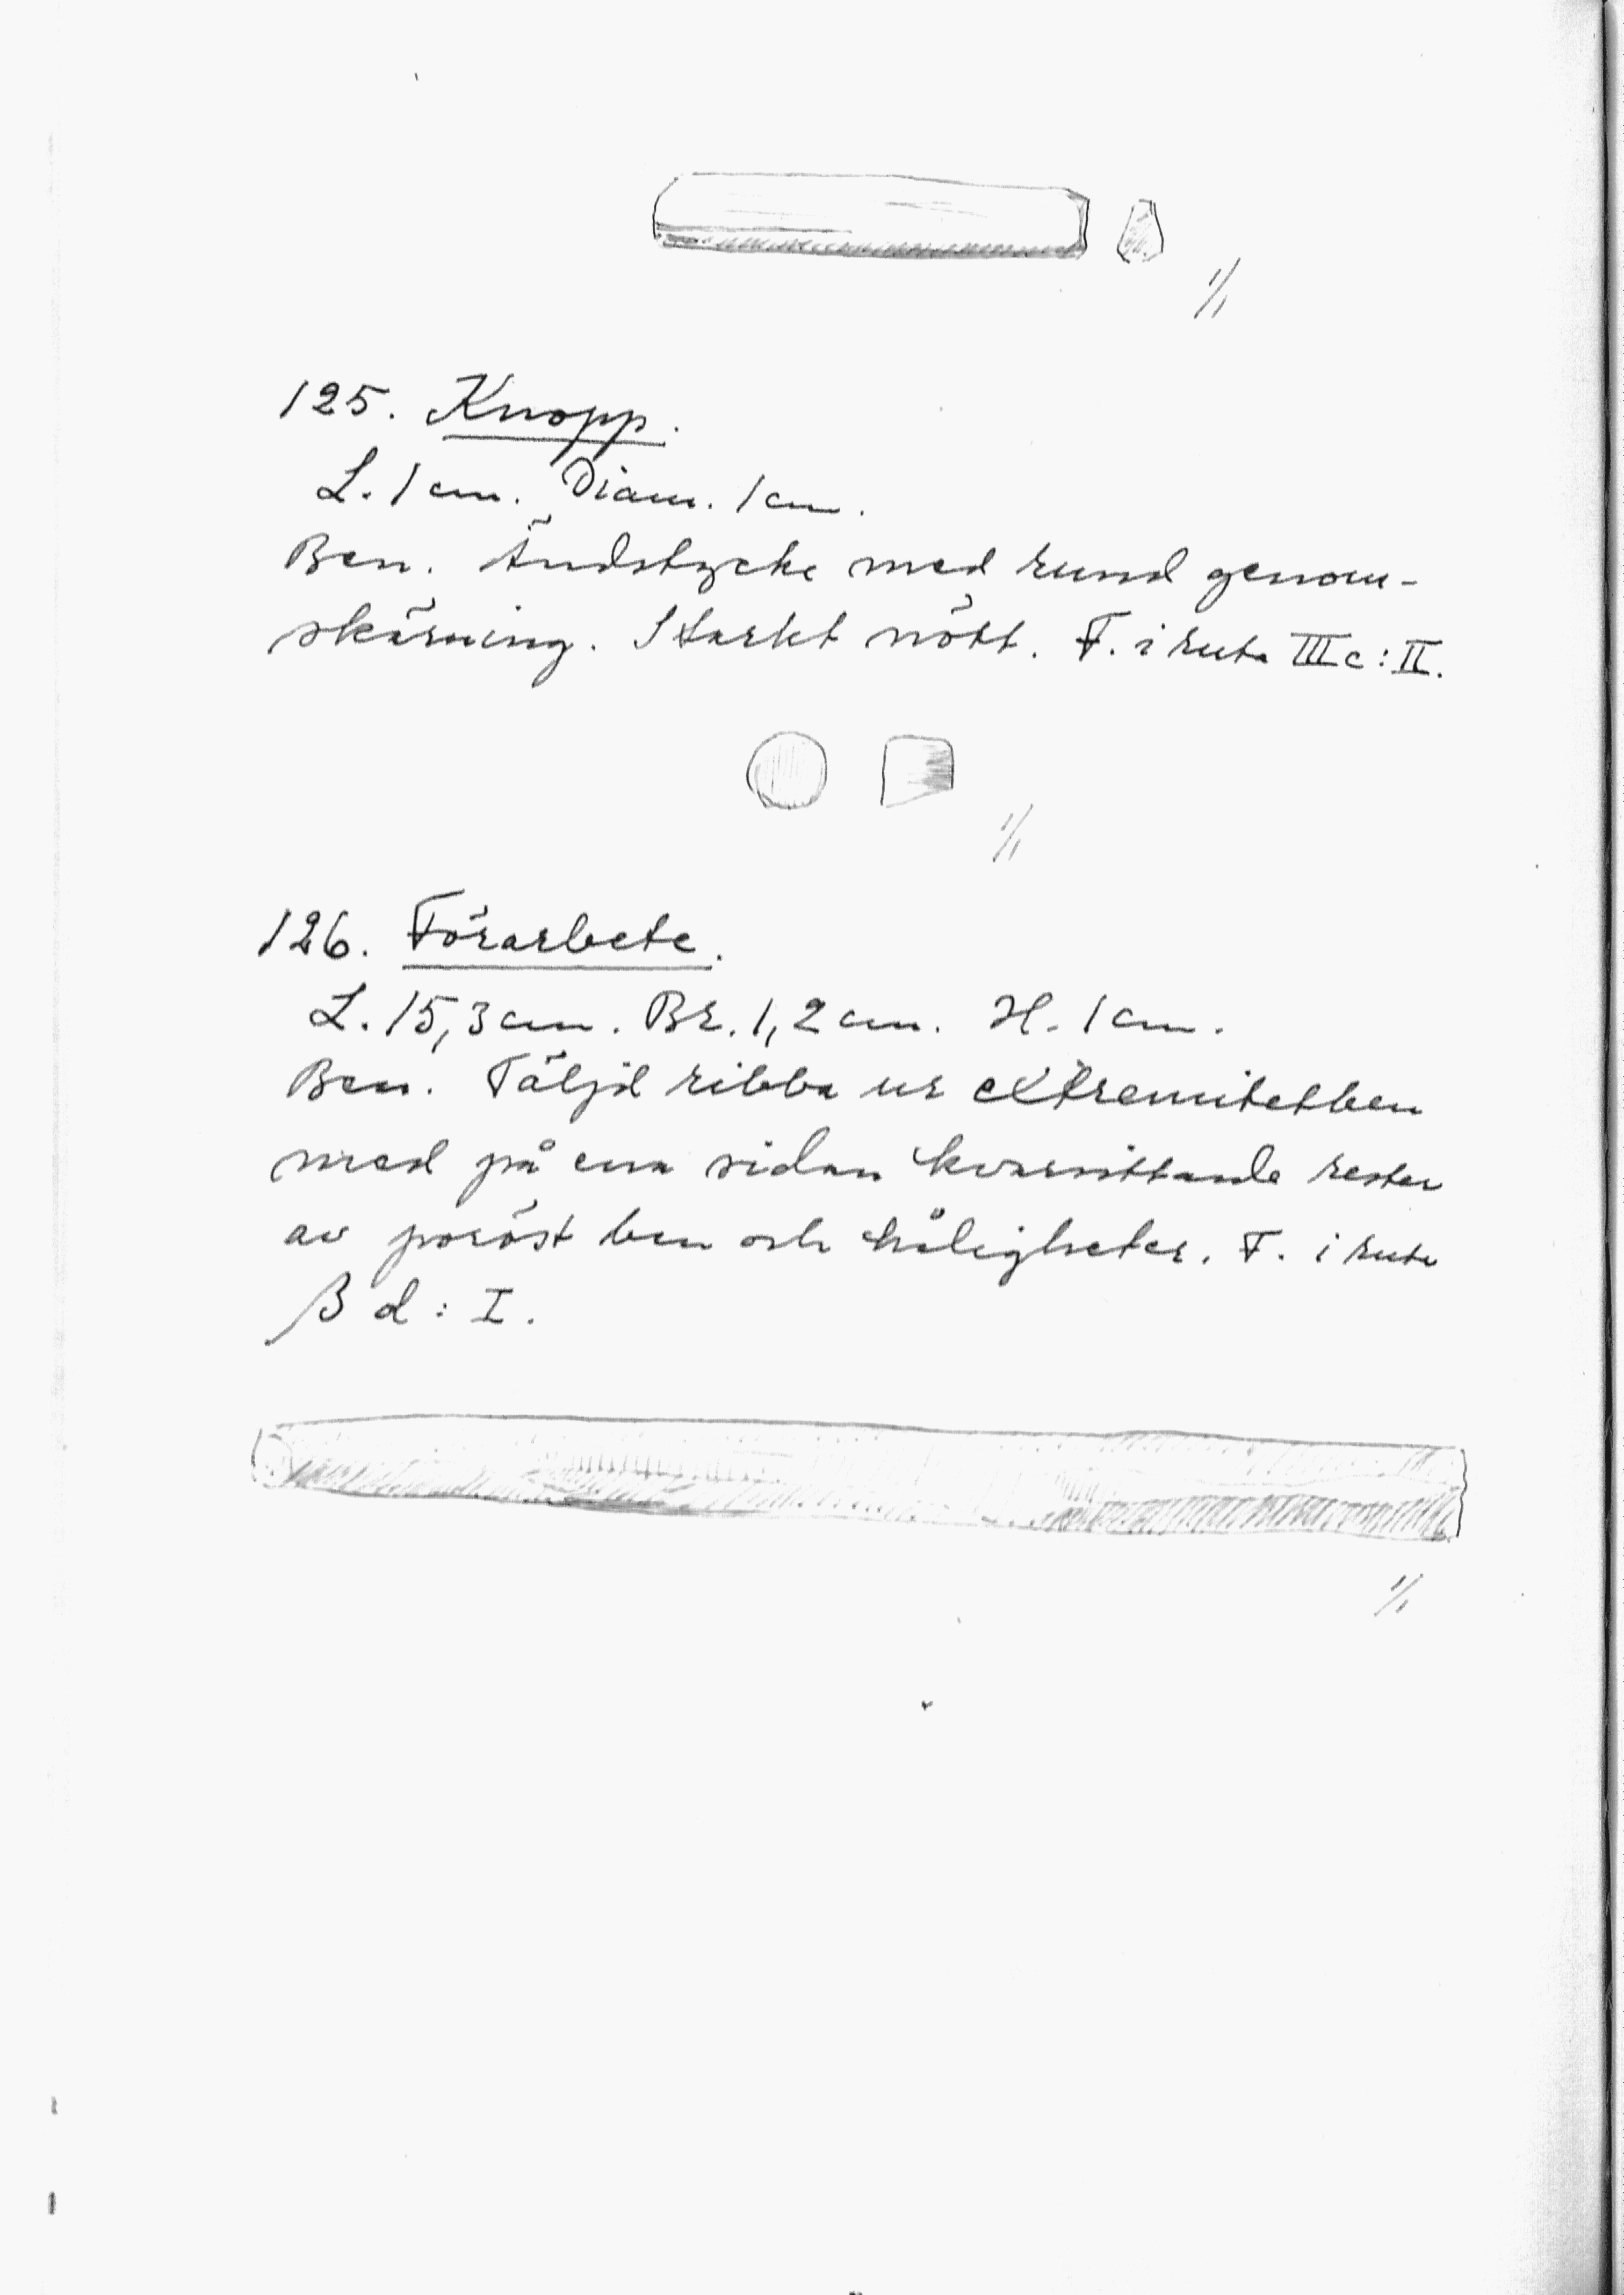 1/1
125. Knopp.
L. 1 cm. Diam. 1 cm.
Ben. Ändstycke med rund genom-
skärning. Starkt nött. F. i ruta IIIc:II.
1/1
126. Förarbete.
L. 15,3 cm. Br. 1,2 cm. H. 1 cm.
Ben. Täljd ribba ur extremitetben
med på ena sidan kvarsittande rester
av poröst ben och håligheter. F. i ruta
β d : I.
1/1